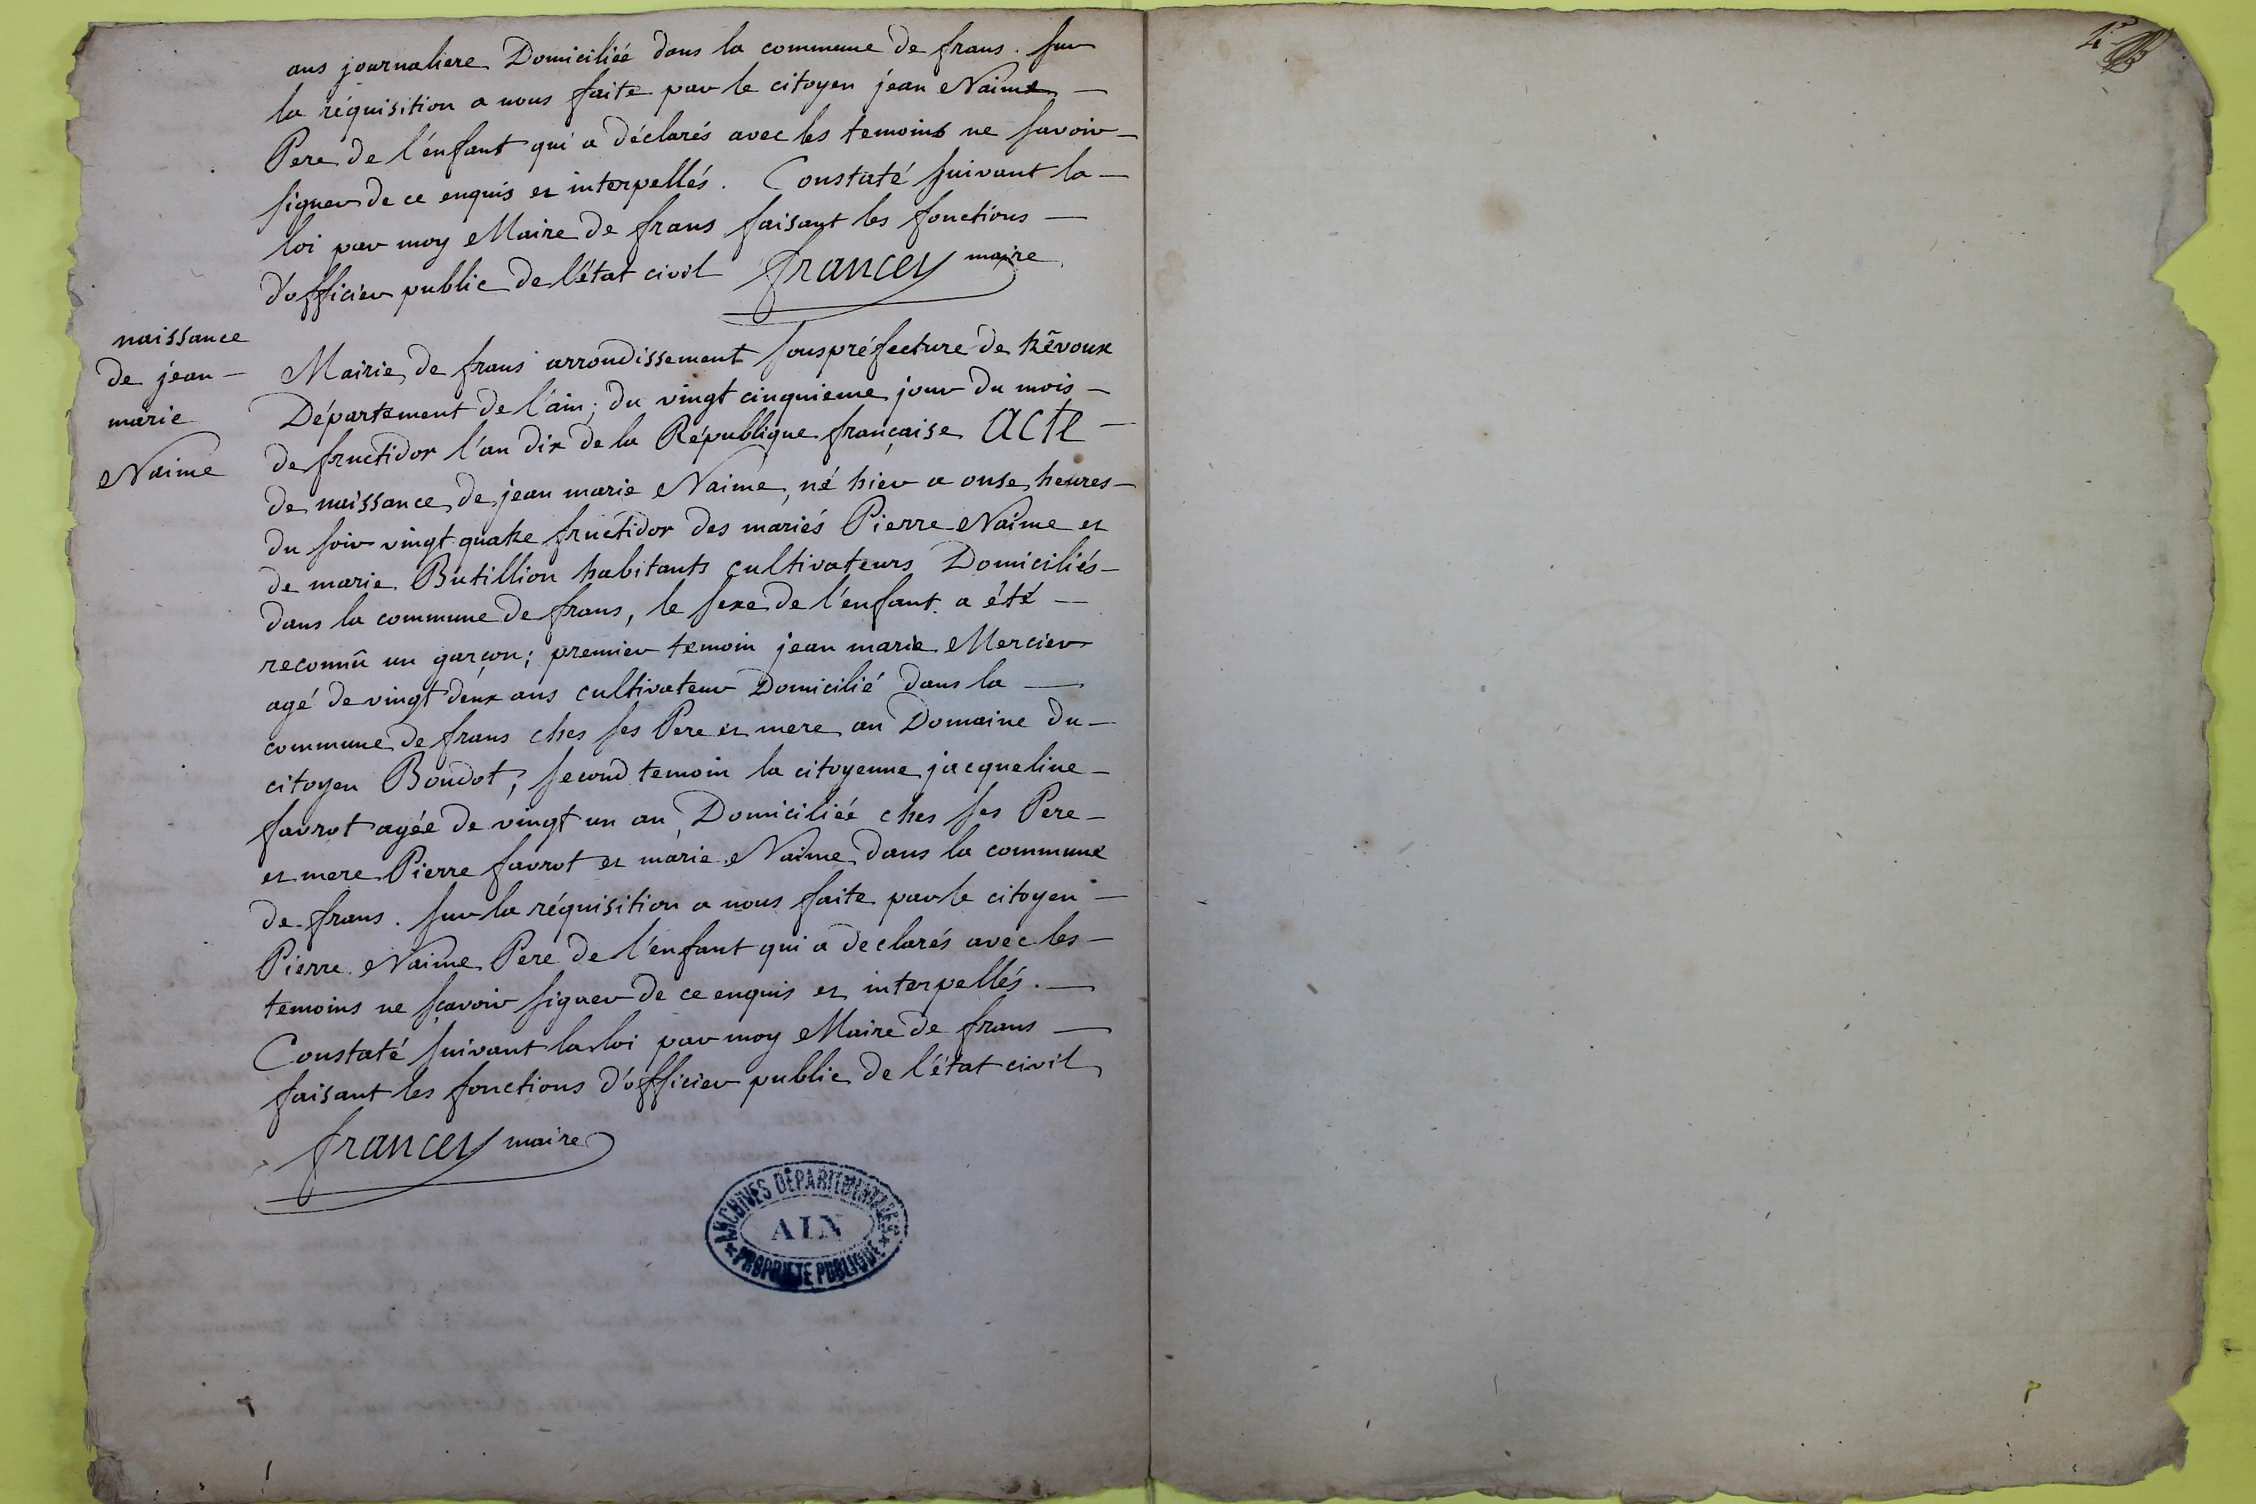 ans journaliere Domiciliéé dans la commune de frans. sur
la réquisition a nous faite par le citoyen jean Naime
Pere de l'énfant qui a déclarés avec les temoins ne savoir
signer de ce enquis et interpellés. Constaté suivant la
loi par moy Maire de frans faisant les fonctions
d'officier public de l'état civil francey maire
naissance
de jean
marie
Naime
Mairie de frans arrondissement souspréfecture de trẽvoux
Département de l'ain; du vingt cinquieme jour du mois
de fructidor l'an dix de la République française acte
de naissance de jean marie Naime, né hier a onse heures
du soir vingt quatre fructidor des mariés Pierre Naime et
de marie Butillion habitants cultivateurs Domiciliés
dans la commune de frans, le sexe de l'enfant a été
reconnû un garçon; premier temoin jean marie Mercier
agé de vingt deux ans cultivateur Domicilié dans la
commune de frans ches ses Pere et mere au Domaine du
citoyen Boudot; second temoin la citoyenne jacqueline
favrot agée de vingt un an Domiciliéé ches ses Pere
et mere Pierre favrot et marie Naime dans la commune
de frans. sur la réquisition a nous faite par le citoyen
Pierre Naime Pere de l'énfant qui a declarés avec les
temoins ne sçavoir signer de ce enquis et interpellés.
Constaté suivant la loi par moy Maire de frans
faisant les fonctions d'officier public de l'état civil
francey maire
ARCHIVES DÉPARTEMENTALES
AIN
PROPRIÉTÉ PUBLIQUE